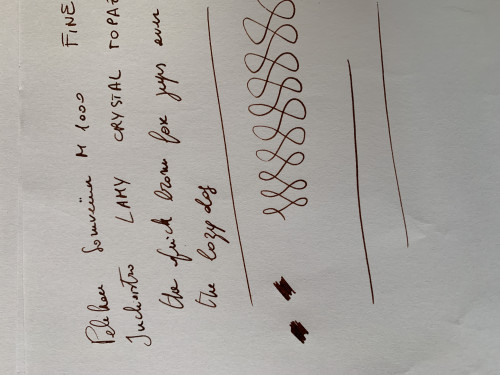 Pelikan Souverän M 1000 FINE
Inchiostro LAMY CRYSTAL TOPAZ
the quick brown fox jumps over
the lazy dog